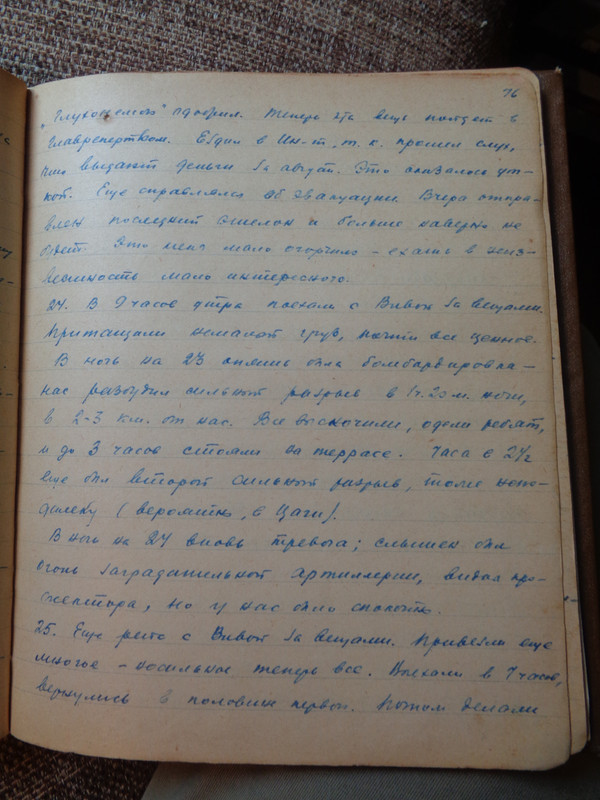 76
"Глухонемой" одобрил. Теперь эта вещь пойдет в
Главрепертком. Ездил в Ин-т, т.к. прошел слух,
что выдают деньги за август. Это оказалось ут-
кой. Еще справлялся об эвакуации. Вчера отпра-
влен последний эшелон и больше наверно не
будет. Это меня мало огорчило – ехать в неиз-
вестность мало интересного.
24. В 9 часов утра поехали с Вивой за вещами.
Притащили немалый груз, почти все ценное.
В ночь на 23 опять была бомбардировка –
нас разбудил сильный разрыв в 1 ч. 20 м. ночи,
в 2-3 км. от нас. Все вскочили, одели ребят,
и до 3 часов стояли на террасе. Часа в 2 1/2
еще был второй сильный разрыв, тоже непо-
далеку (вероятно, в Цаги).
В ночь на 24 вновь тревога; слышен был
огонь заградительной артиллерии, видел про-
жектора, но у нас было спокойно.
25. Еще рейс с Вивой за вещами. Привезли еще
многое – носильное теперь все. Поехали в 7 часов,
вернулись в половине первого. Потом делали